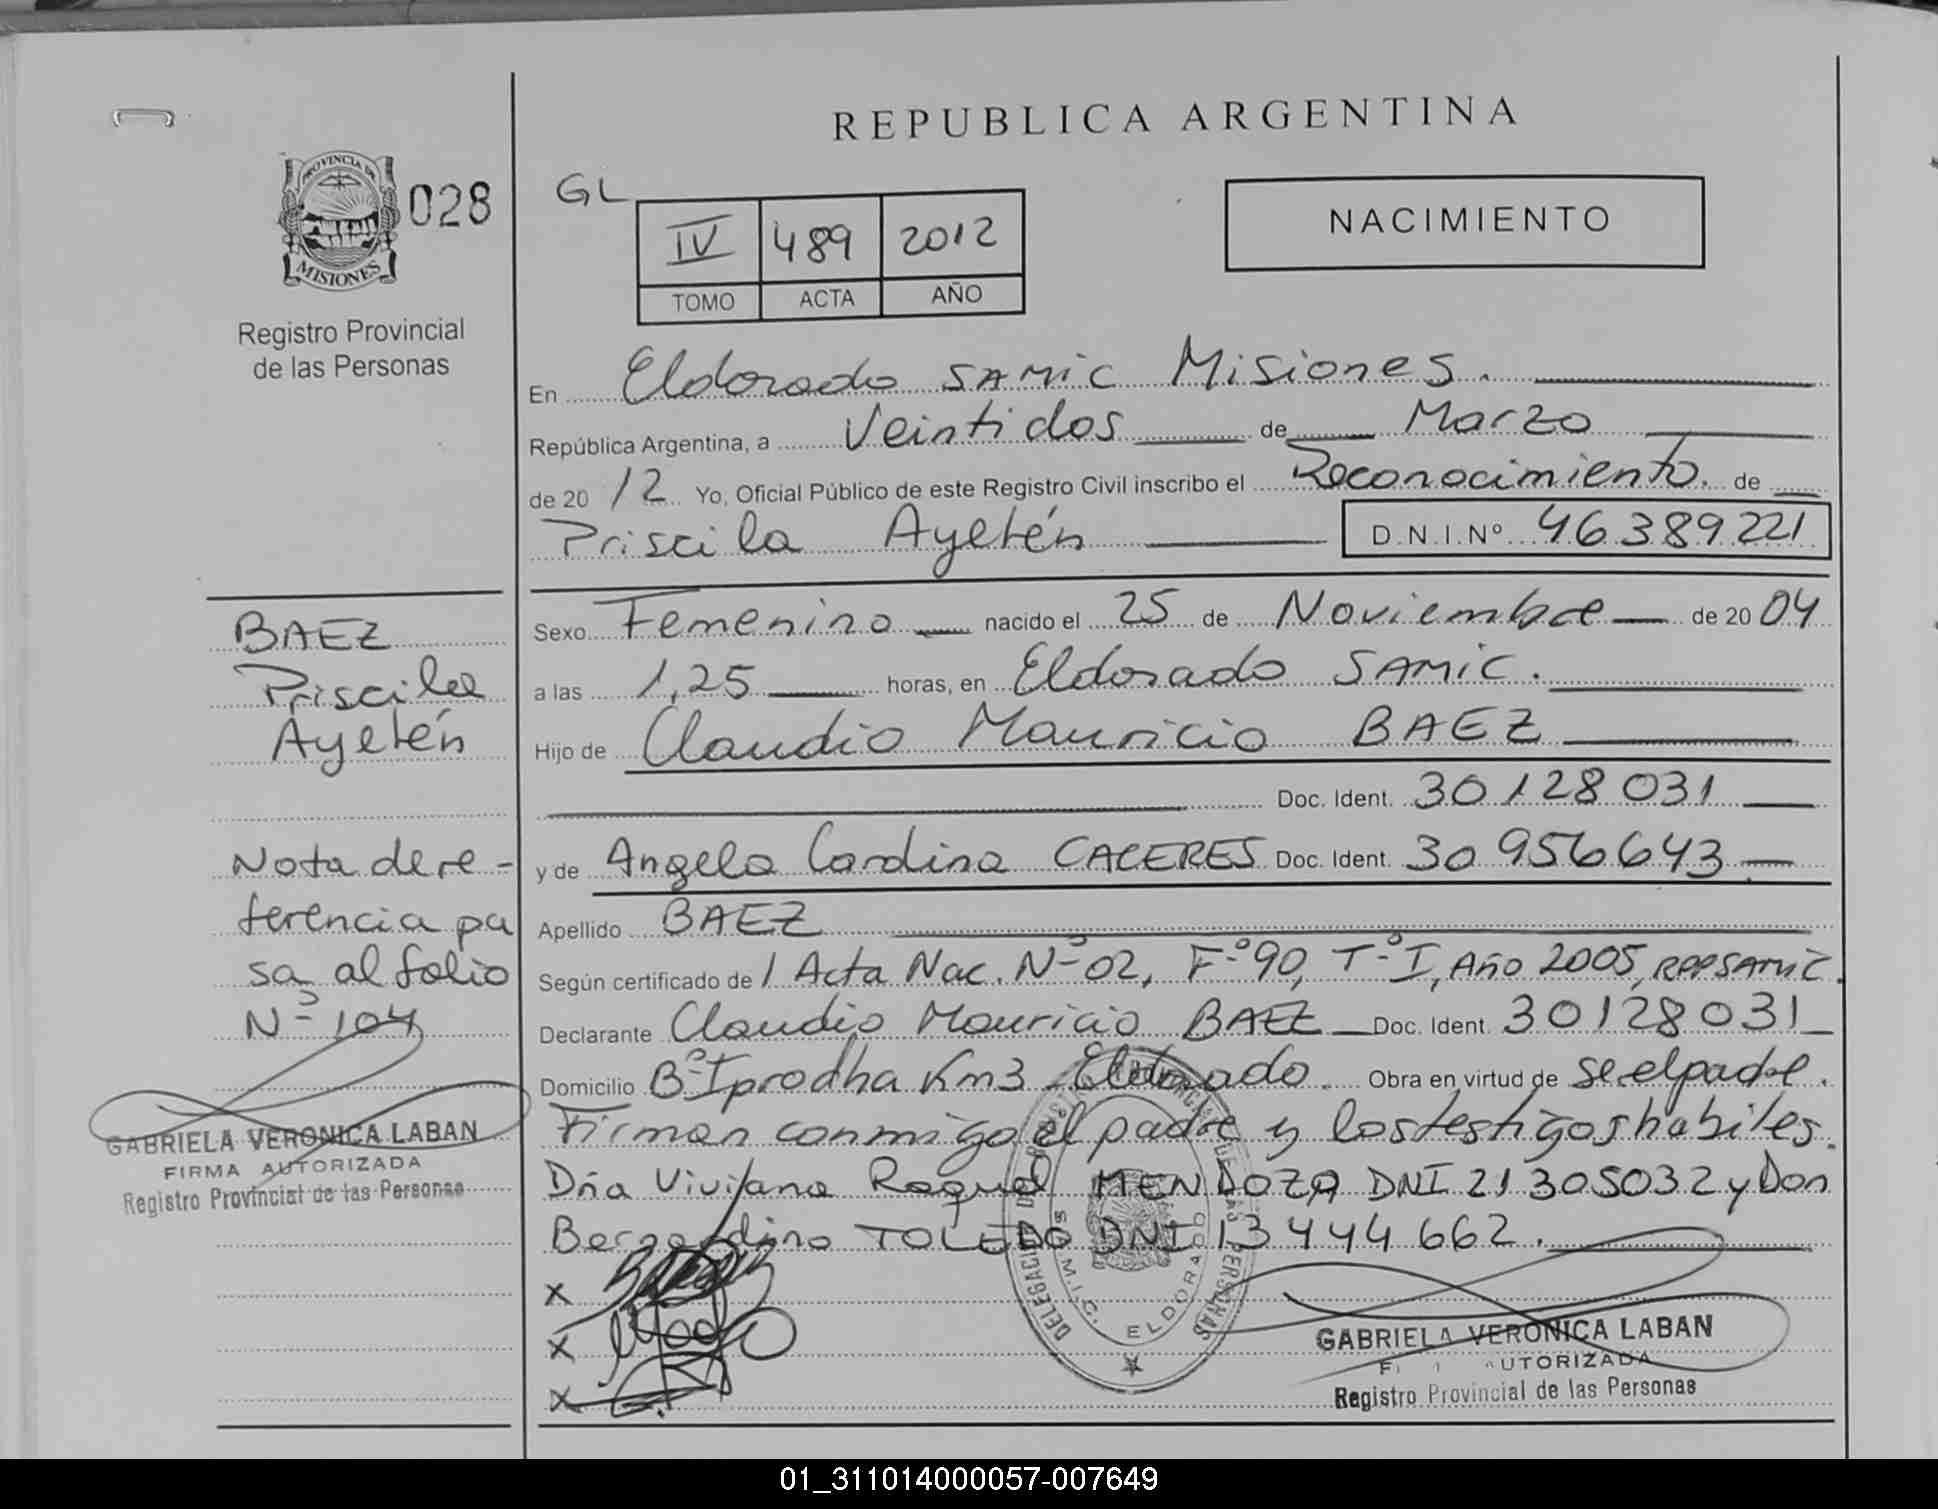 REPUBLICA ARGENTINA
PROVINCIA DE
MISIONES
028
Registro Provincial
de las Personas
GL
IV 489 2012
TOMO ACTA AÑO
NACIMIENTO
En Eldorado SAMIC Misiones.
República Argentina, a Veintidos de Marzo
de 20 12 Yo, Oficial Público de este Registro Civil inscribo el Reconocimiento. de
Priscila Ayelén D.N.I.Nº 46.389.221
Sexo Femenino nacido el 25 de Noviembre de 20 04
a las 1,25 horas, en Eldorado SAMIC.
Hijo de Claudio Mauricio BAEZ
Doc. Ident. 30128031
y de Angela Carolina CACERES Doc. Ident. 30956643
Apellido BAEZ
Según certificado de 1 Acta Nac. Nº 02, Fº 90, Tº I, Año 2005, RPPSAMIC.
Declarante Claudio Mauricio BAEZ Doc. Ident. 30128031
Domicilio Bº Iprodha Km3 Eldorado. Obra en virtud de se el padre.
Firman conmigo el padre y los testigos habiles.
Dña Viviana Raquel MENDOZA DNI 21305032 y Don
Bernardino TOLEDO DNI 13444662.
X
X
X
BAEZ
Priscila
Ayelén
Nota de re-
ferencia pa
sa al folio
Nº 104
GABRIELA VERONICA LABAN
FIRMA AUTORIZADA
Registro Provincial de las Personas
ELDORADO
GABRIELA VERONICA LABAN
AUTORIZADA
Registro Provincial de las Personas
01_311014000057-007649